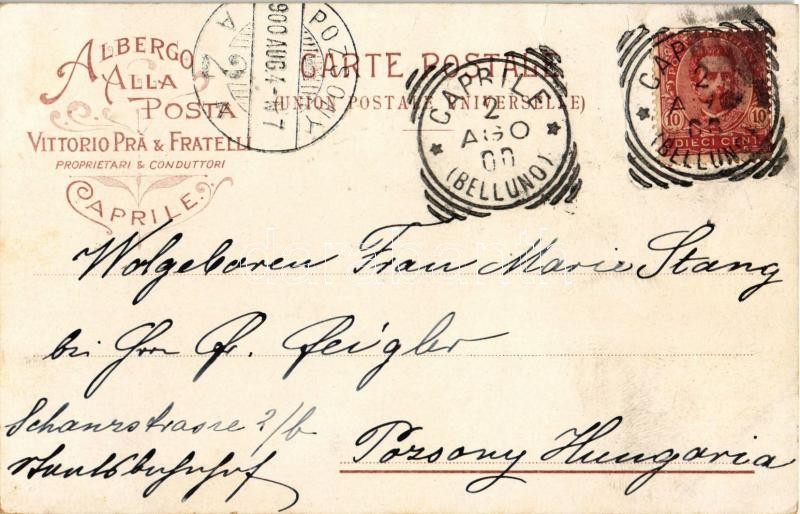 ALBERGO
ALLA
POSTA
VITTORIO PRÀ & FRATELLI
PROPRIETARI & CONDUTTORI
CAPRILE.
POZSONY
900 AUG 4
A 2
CARTE POSTALE
(UNION POSTALE UNIVERSELLE)
CAPRILE
2
AGO
00
(BELLUNO)
CAP
2
A
00
(BELLUNO)
10 10
DIECI CENT
Wolgeboren Frau Marie Stang
bei Hrn Fr. Zeigler
Schanzstrasse 2/b
Staatsbahnhof
Pozsony Hungaria